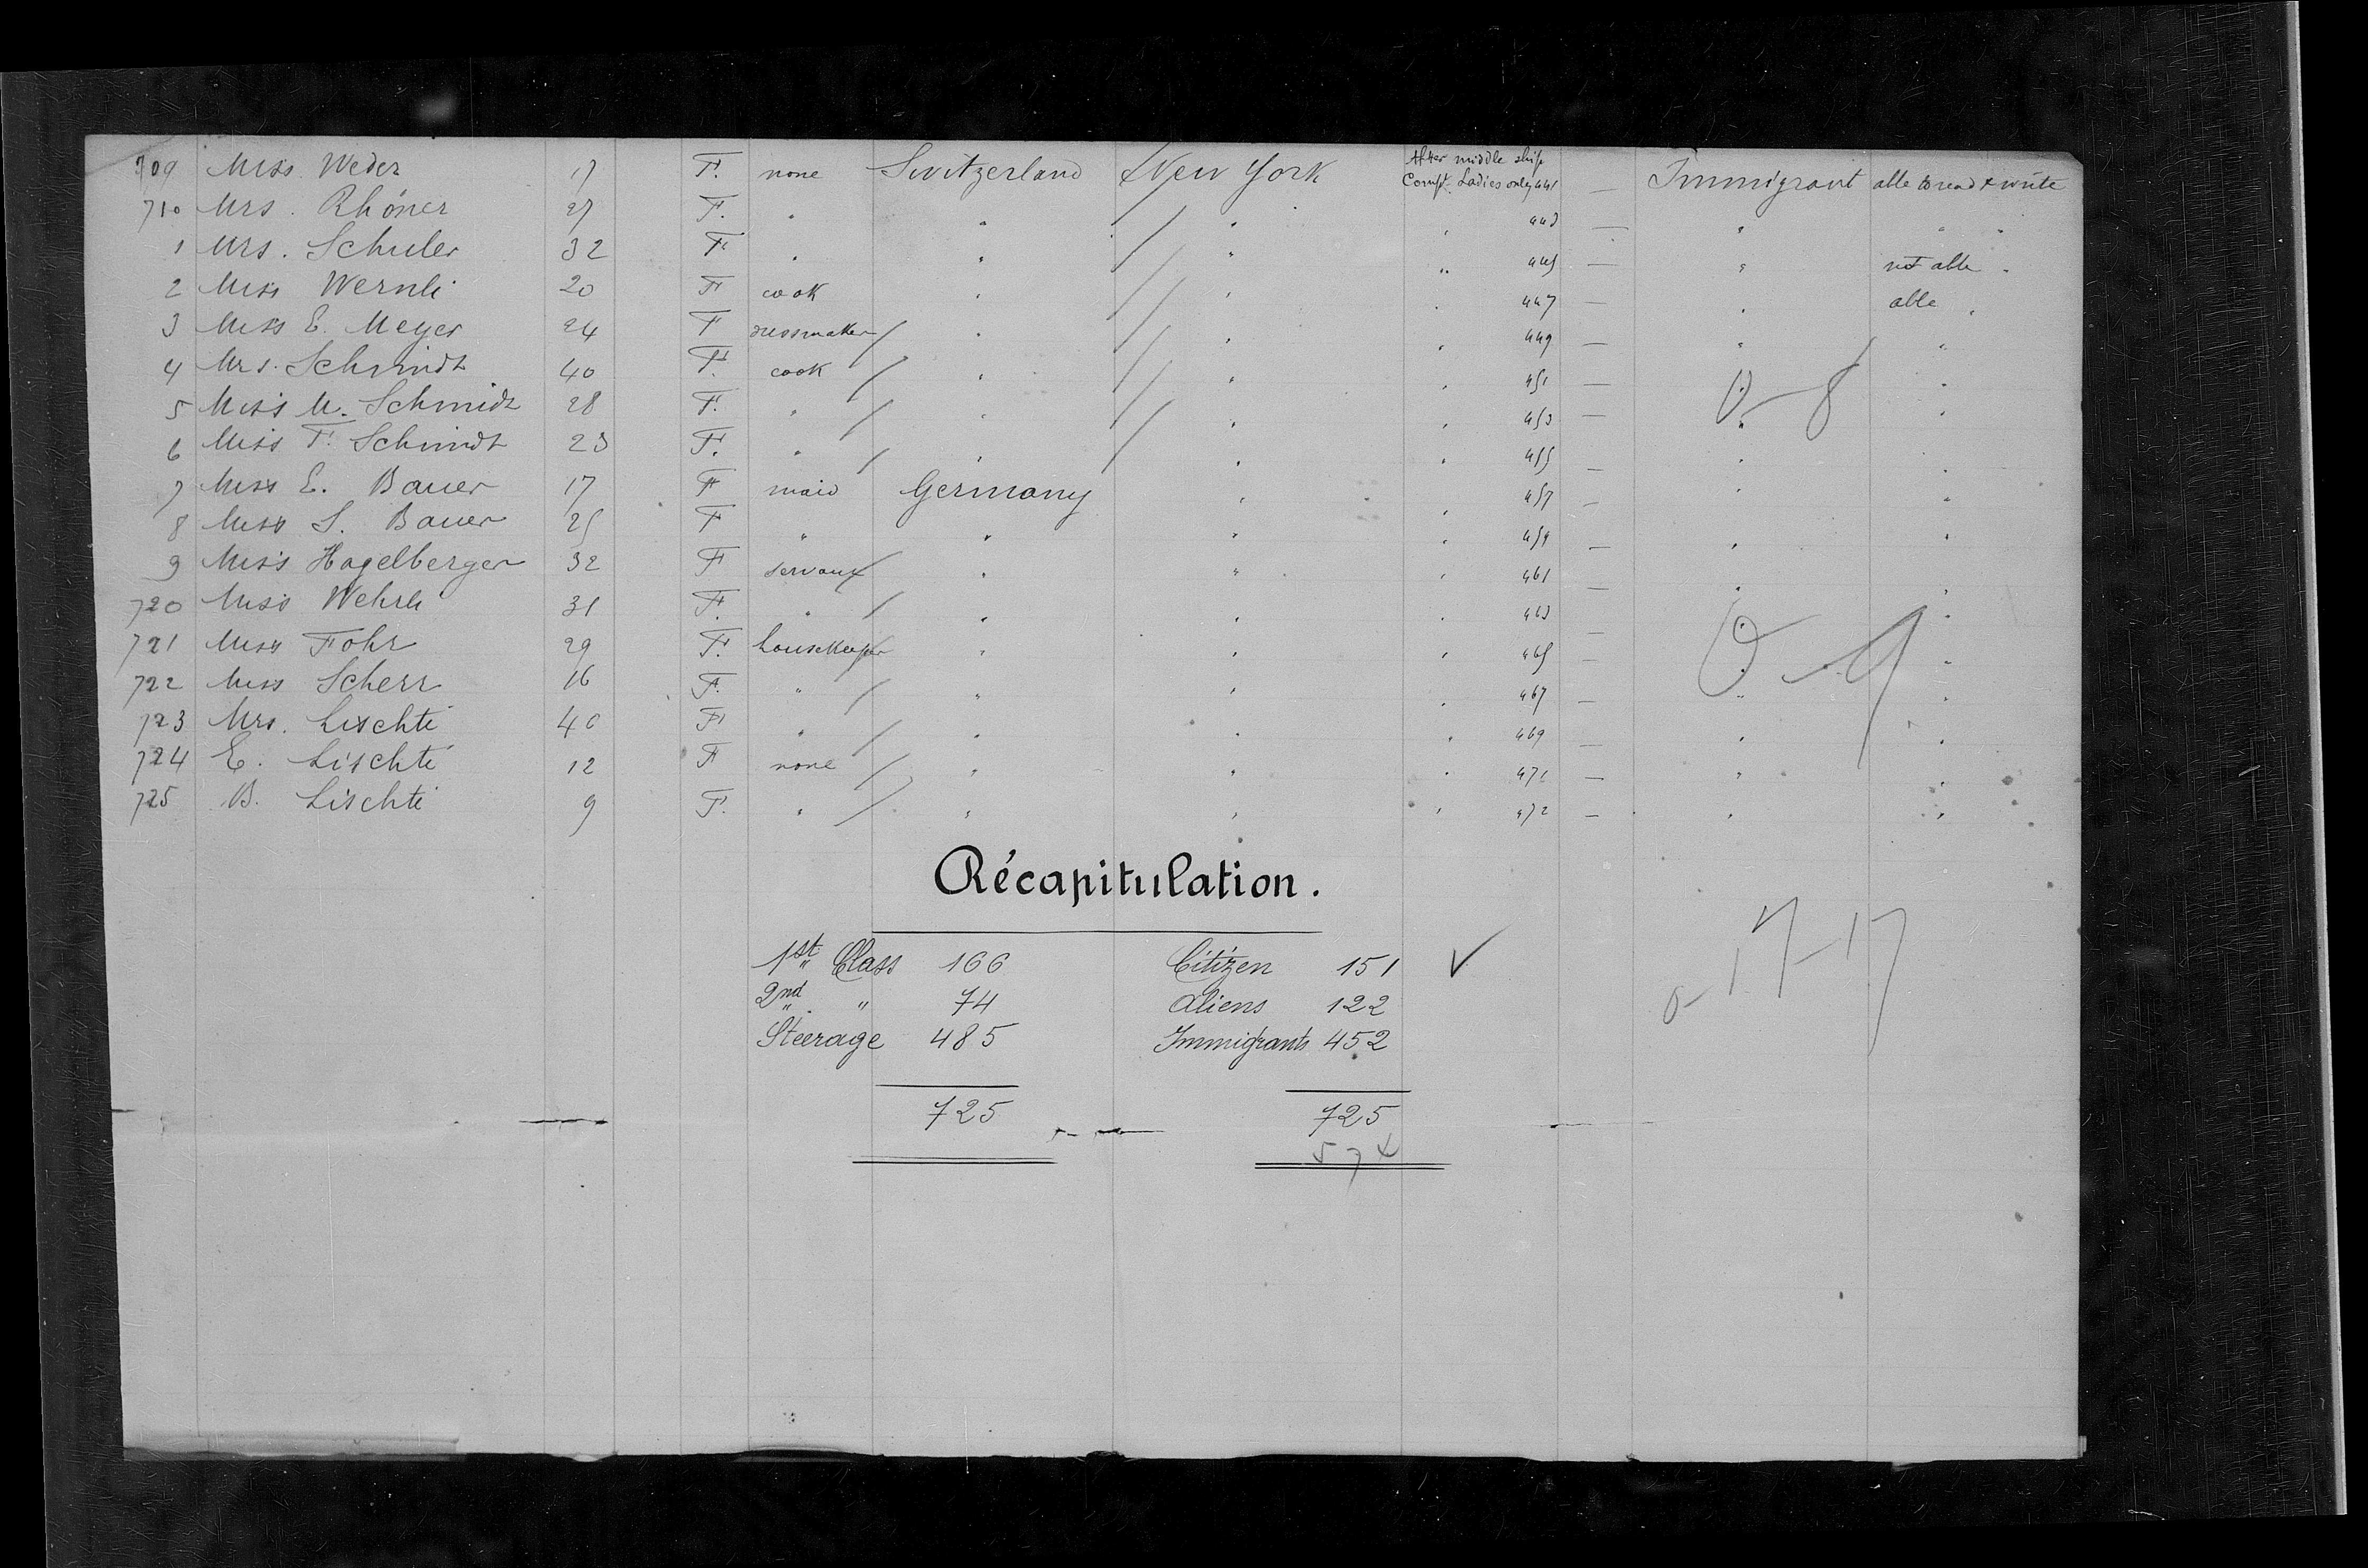 709 Miss Weder 17 F. none Switzerland New York After middle ship Compt. Ladies only 441 — Immigrant able to read & write
710 Mrs. Rhöner 27 F. " " " " 443 — " " "
1 Mrs. Schuler 32 F. " " " " 445 — " not able "
2 Miss Wernli 20 F cook " " " 447 — " able "
3 Miss E. Meyer 24 F dressmaker " " " 449 — " "
4 Mrs. Schmidt 40 F. cook " " " 451 — " "
5 Miss M. Schmidt 28 F. " " " " 453 — " "
6 Miss F. Schmidt 23 F. " " " " 455 — " "
7 Miss E. Bauer 17 F maid Germany " " 457 — " "
8 Miss S. Bauer 25 F " " " " 459 — " "
9 Miss Hagelberger 32 F servant " " " 461 — " "
720 Miss Wehrli 31 F. " " " " 463 — " "
721 Miss Fohr 29 F. housekeeper " " " 465 — " "
722 Miss Scherr 16 F. " " " " 467 — " "
723 Mrs. Lischti 40 F " " " " 469 — " "
724 E. Lischti 12 F none " " " 471 — " "
725 B. Lischti 9 F. " " " " 472 — " "
0-8
0-9
Récapitulation.
1st Class 166 Citizen 151 ✓
2nd " 74 Aliens 122
Steerage 485 Immigrants 452
725 725
574
0-17-17